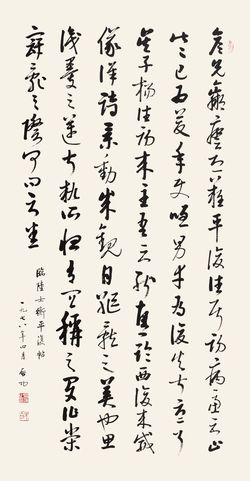 彦先羸瘵恐難平復往屬初病慮不止
此已為慶承使唯男幸為復失前憂耳
吳子楊往初來主吾不能盡臨西復來威
儀詳跱舉動成觀自軀體之美也思
識量之邁前執所恒有宜稱之夏伯榮
寇亂之際聞問不悉
臨陸士衡平復帖
一九七八年四月 啟功